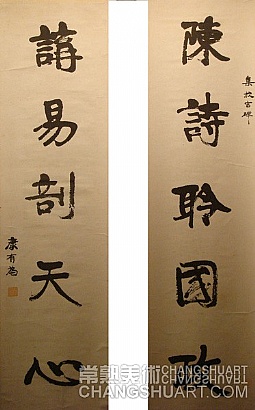 陳詩聆國政
集校官碑
講易剖天心
康有為
常熟美術 CHANGSHUART
CHANGSHUART.COM